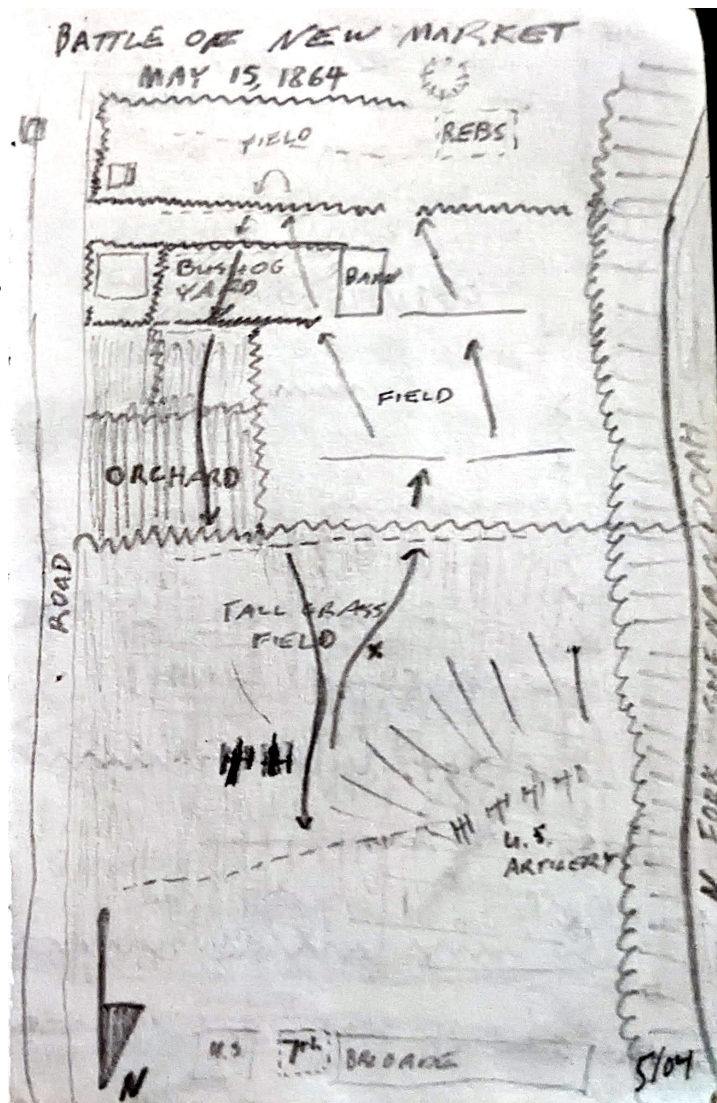 BATTLE OF NEW MARKET
MAY 15, 1864
FIELD
REBS
BUSHOG
YARD
BARN
FIELD
ORCHARD
ROAD
TALL GRASS
FIELD
X
U.S.
ARTILERY
N. FORK SHENANDOAH
N
U.S.
BRIGADE
5/04